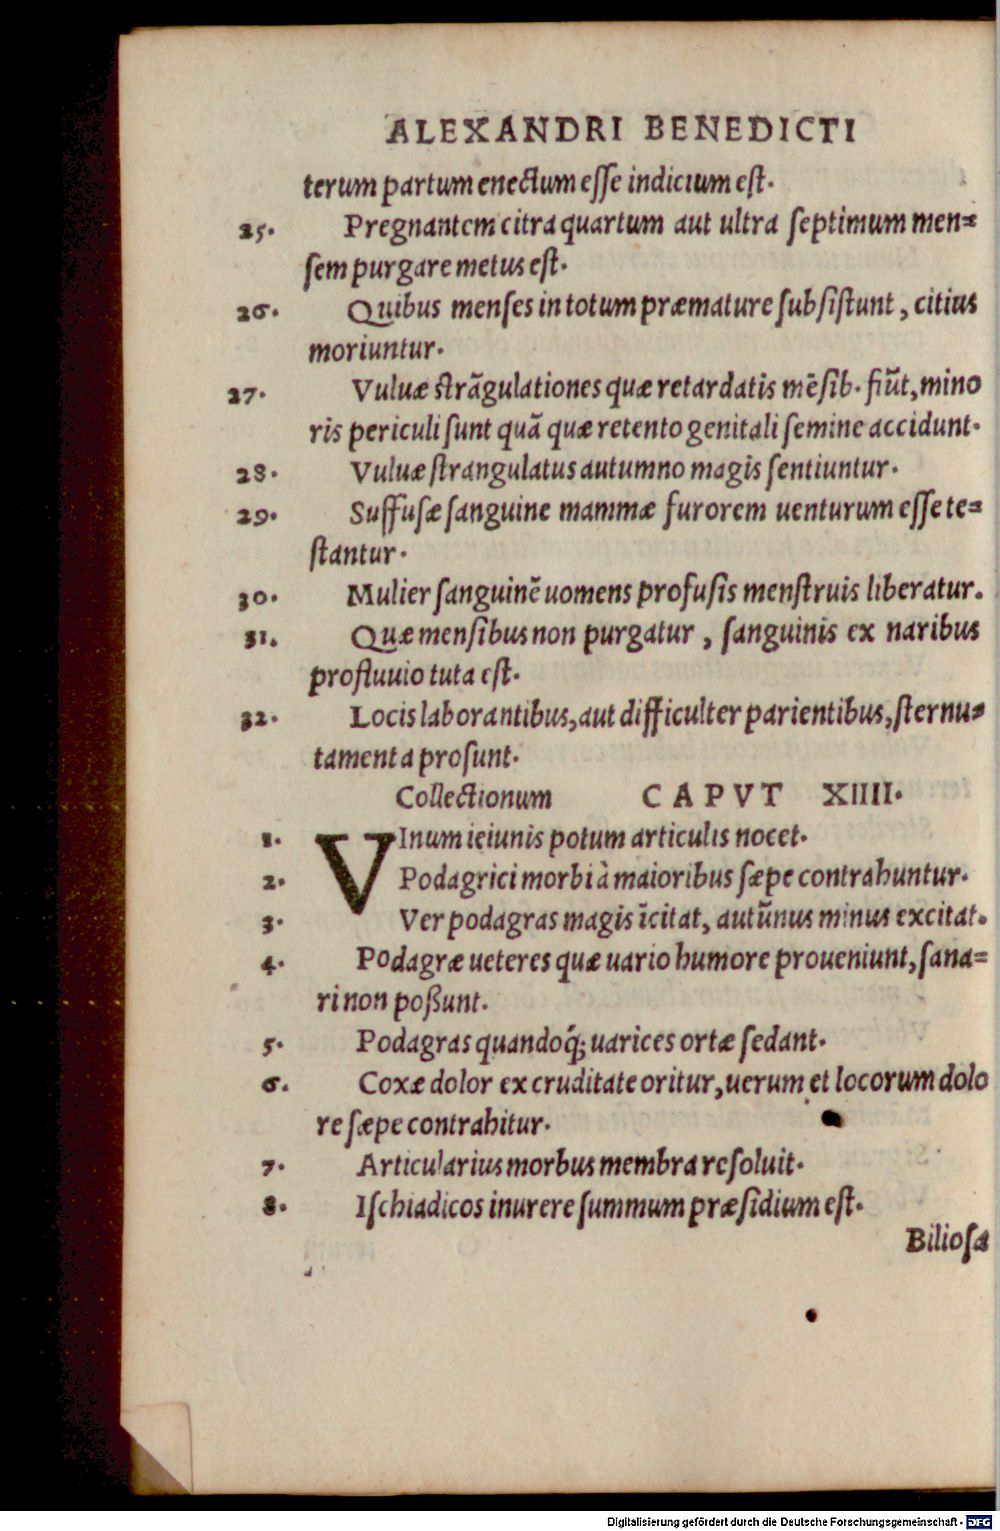 ALEXANDRI BENEDICTI
terum partum enectum esse indicium est.
25. Pregnantem citra quartum aut ultra septimum men=
sem purgare metus est.
26. Quibus menses in totum præmature subsistunt, citius
moriuntur.
27. Vuluæ strãgulationes quæ retardatis mẽsib. fiũt, mino
ris periculi sunt quã quæ retento genitali semine accidunt.
28. Vuluæ strangulatus autumno magis sentiuntur.
29. Suffusæ sanguine mammæ furorem uenturum esse te=
stantur.
30. Mulier sanguinẽ uomens profusis menstruis liberatur.
31. Quæ mensibus non purgatur, sanguinis ex naribus
profluuio tuta est.
32. Locis laborantibus, aut difficulter parientibus, sternu=
tamenta prosunt.
Collectionum CAPVT XIIII.
1. VInum ieiunis potum articulis nocet.
2. Podagrici morbi à maioribus sæpe contrahuntur.
3. Ver podagras magis ĩcitat, autũnus minus excitat.
4. Podagræ ueteres quæ uario humore proueniunt, sana=
ri non poßunt.
5. Podagras quandoq́; uarices ortæ sedant.
6. Coxæ dolor ex cruditate oritur, uerum et locorum dolo
re sæpe contrahitur.
7. Articularius morbus membra resoluit.
8. Ischiadicos inurere summum præsidium est.
Biliosa
Digitalisierung gefördert durch die Deutsche Forschungsgemeinschaft - DFG